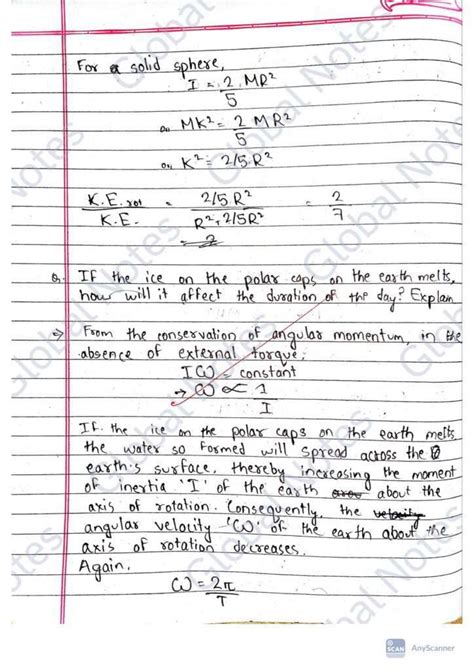 For a solid sphere,
I = 2/5 MR²
or, MK² = 2/5 MR²
or, K² = 2/5 R²
K.E. rot / K.E. = 2/5 R² / R² + 2/5 R² = 2/7
Q. If the ice on the polar caps on the earth melts,
how will it affect the duration of the day? Explain
→ From the conservation of angular momentum, in the
absence of external torque,
Iω = constant
→ ω ∝ 1/I
If the ice on the polar caps on the earth melts
the water so formed will spread across the
earth's surface, thereby increasing the moment
of inertia 'I' of the earth about the
axis of rotation. Consequently, the velocity
angular velocity 'ω' of the earth about the
axis of rotation decreases.
Again,
ω = 2π/T
Global Notes
SCAN AnyScanner